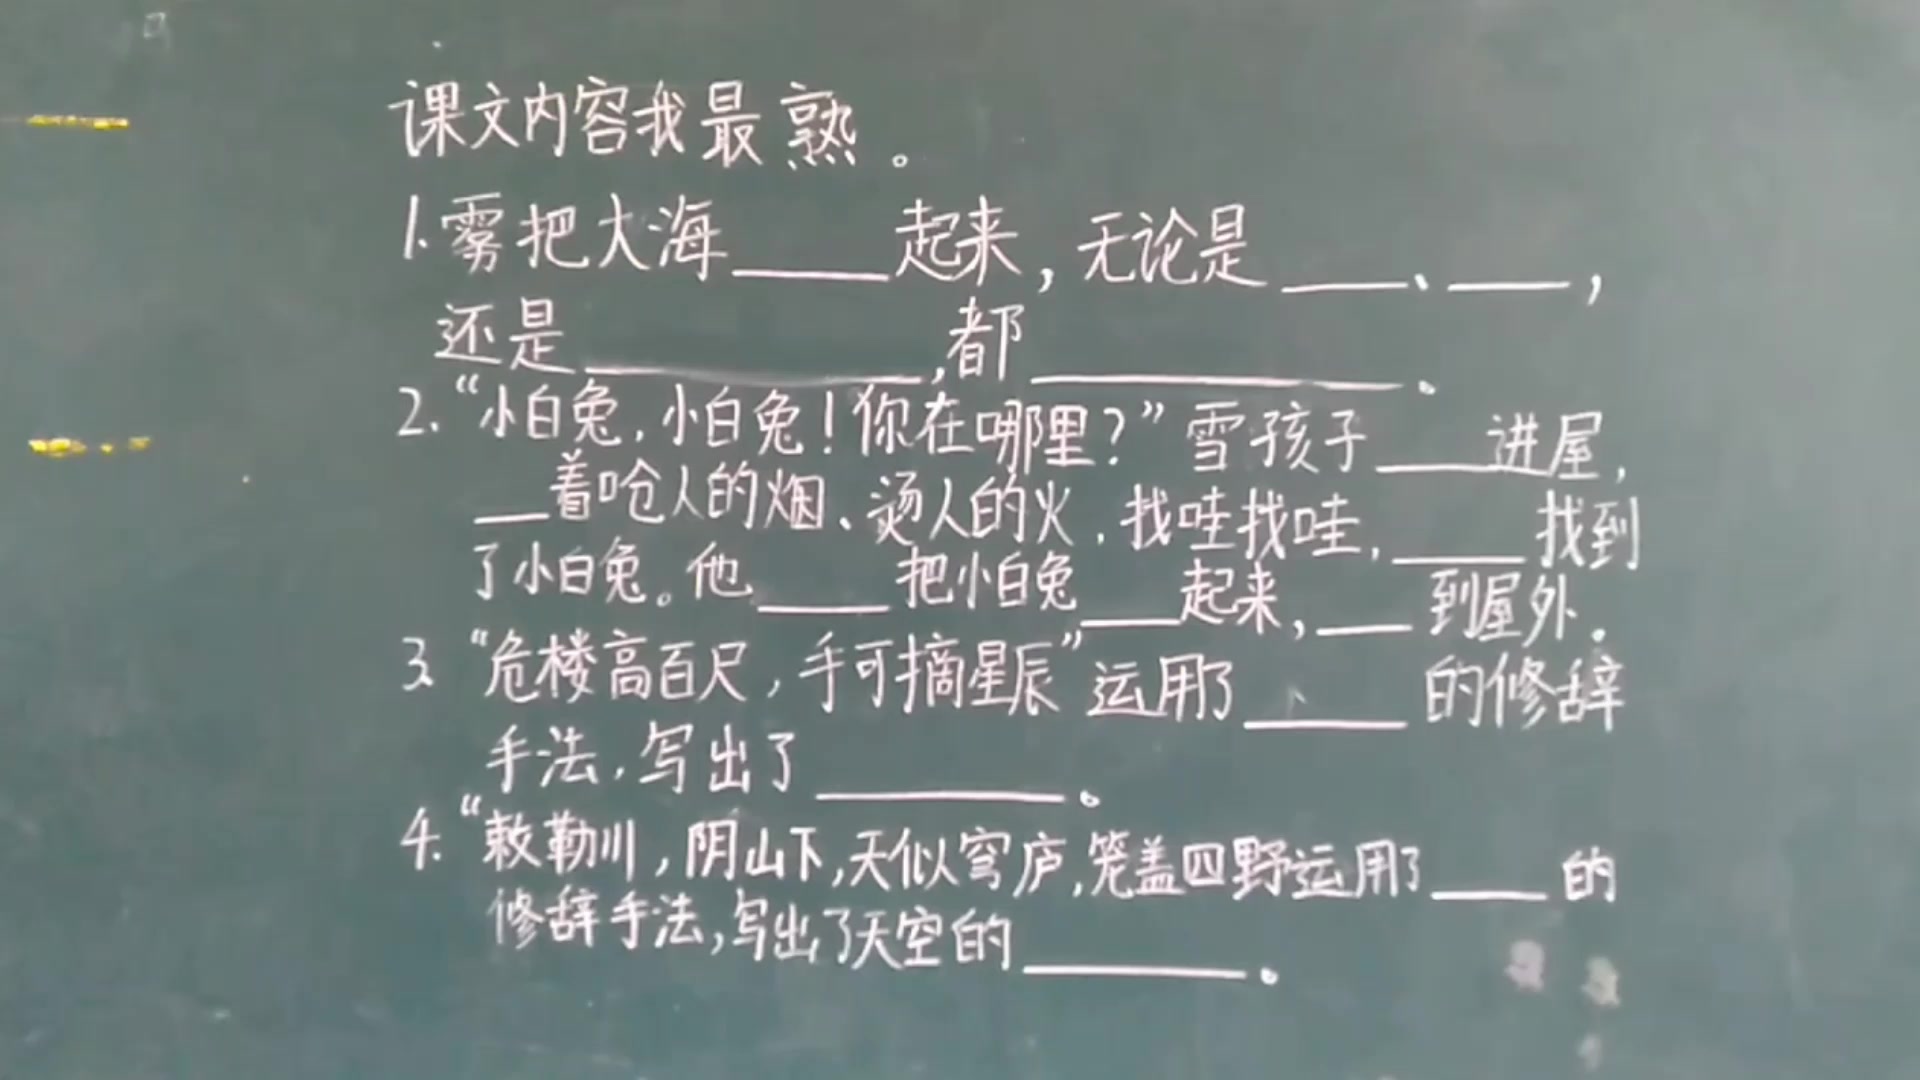 课文内容我最熟。
1.雾把大海____起来,无论是____、____,
还是________,都________.
2.“小白兔,小白兔!你在哪里?”雪孩子____进屋,
__着呛人的烟、烫人的火,找哇找哇,____找到
了小白兔。他____把小白兔____起来,____到屋外.
3.“危楼高百尺,手可摘星辰”运用了____的修辞
手法,写出了________。
4.“敕勒川,阴山下,天似穹庐,笼盖四野运用了____的
修辞手法,写出了天空的________。